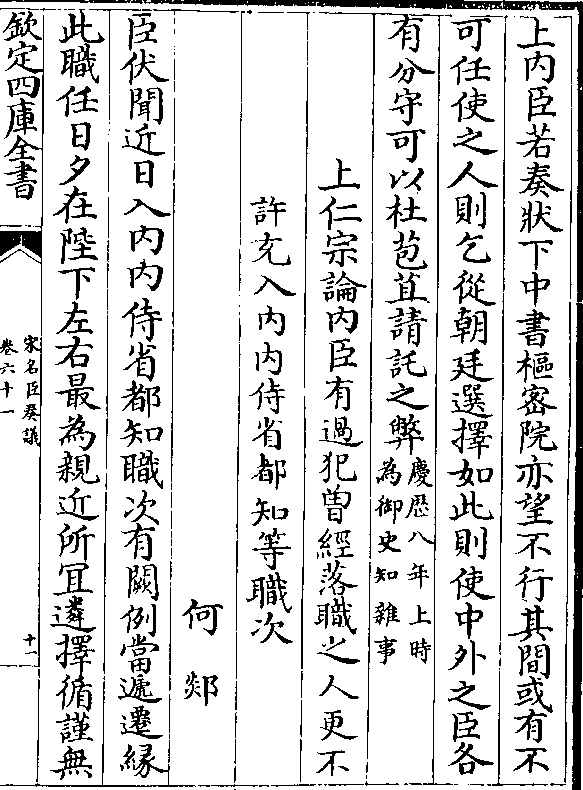 上内臣若奏狀下中書樞宻院亦望不行其間或有不
可任使之人則乞從朝廷選擇如此則使中外之臣各
有分守可以杜苞苴請託之弊慶歴八年上時
為御史知雜事
上仁宗論内臣有過犯曽經落職之人更不
許充入内内侍省都知等職次
何郯
臣伏聞近日入内内侍省都知職次有闕例當遞遷緣
此職任日夕在陛下左右最為親近所冝遴擇循謹無
欽定四庫全書
宋名臣奏議
卷六十一
十一